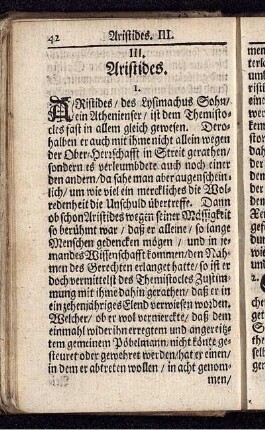 42 Aristides. III.
III.
Aristides.
I.
ARistides/ des Lysimachus Sohn/
ein Athenienser/ ist dem Themisto-
cles fast in allem gleich gewesen. Dero-
halben er auch mit ihme nicht allein wegen
der Ober-Herrschafft in Streit gerathen/
sondern es verleumbdete auch noch einer
den andern/ da sahe man aber augenschein-
lich/ um wie viel ein merckliches die Wol-
redenheit die Unschuld übertreffe. Dann
ob schon Aristides wegen seiner Mässigkeit
so berühmt war/ daß er alleine/ so lange
Menschen gedencken mögen/ und in je-
mandes Wissenschafft kommen/ den Nah-
men des Gerechten erlanget hatte/ so ist er
doch vermittelst des Themistocles Zustim-
mung mit ihme dahin gerathet/ daß er in
ein zehenjähriges Elend verwiesen worden.
Welcher/ ob er wol vermerckte/ daß dem
einmahl wider ihn erregtem und angereitz-
tem gemeinem Pöbelmann/ nicht könte ge-
steuret oder gewehret werden/ hat er einen/
in dem er abtreten wollen/ in acht genom-
men/